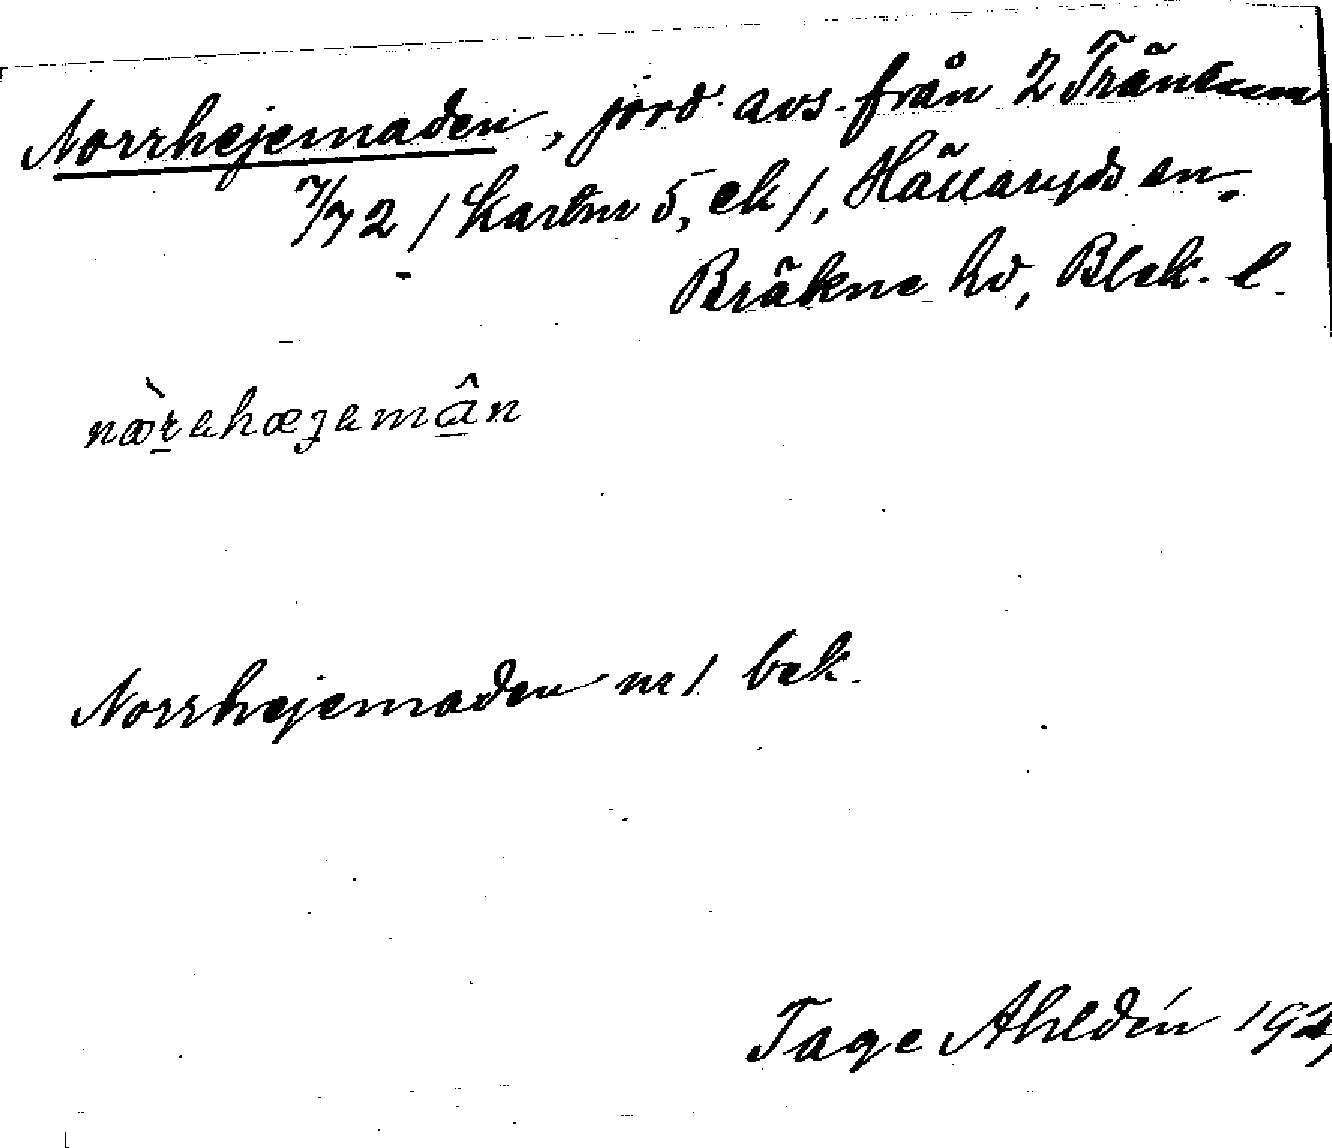 Norrhejemaden, jord avs. från 2 Träntum
7/72 / Kartnr 5, ek /, Hällaryds sn.
Bräkne hd, Blek. l.
næ̀rehæjemân
Norrhejemaden nr 1 bek.
Tage Ahldén